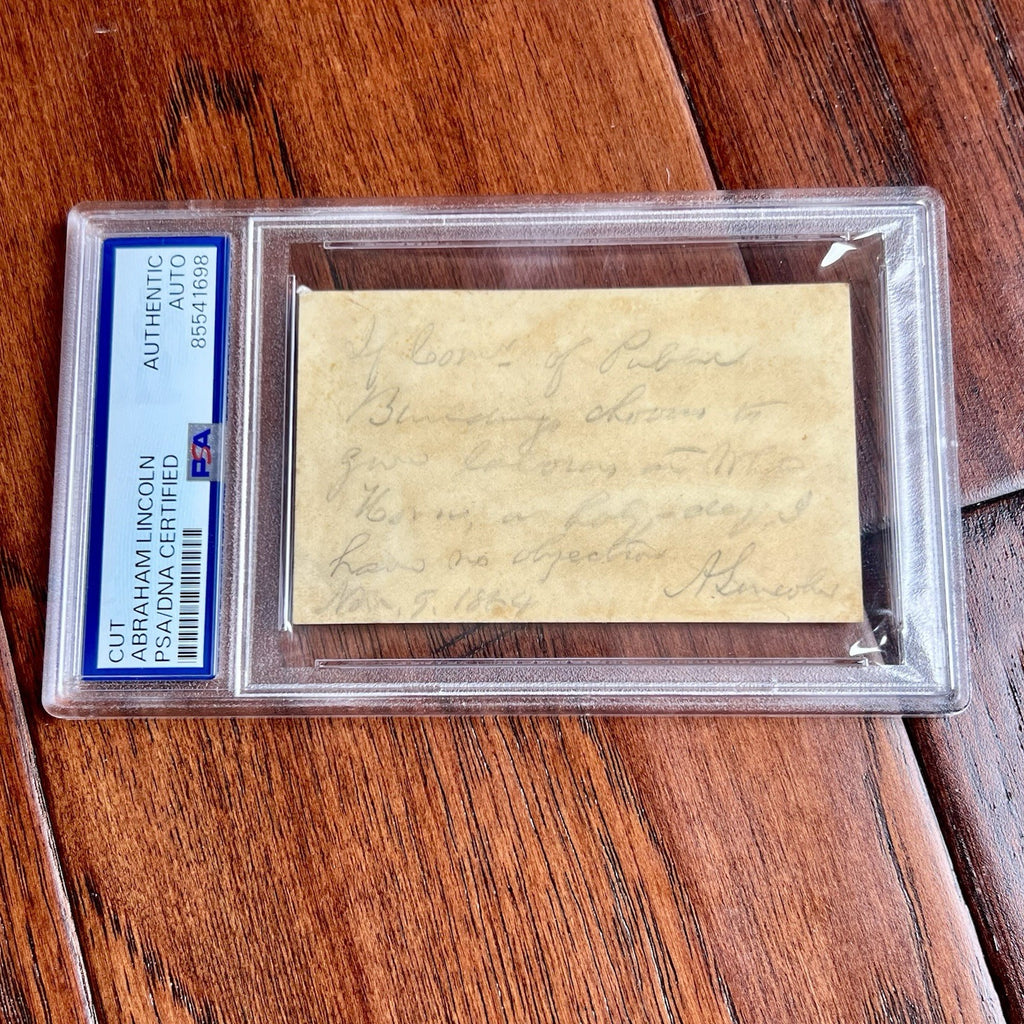 CUT
ABRAHAM LINCOLN
PSA/DNA CERTIFIED
AUTHENTIC
AUTO
85541698
PSA
If Comr of Public
Buildings chooses to
give
House, a holy-day, I
have no objection
A. Lincoln
Nov. 9, 1864